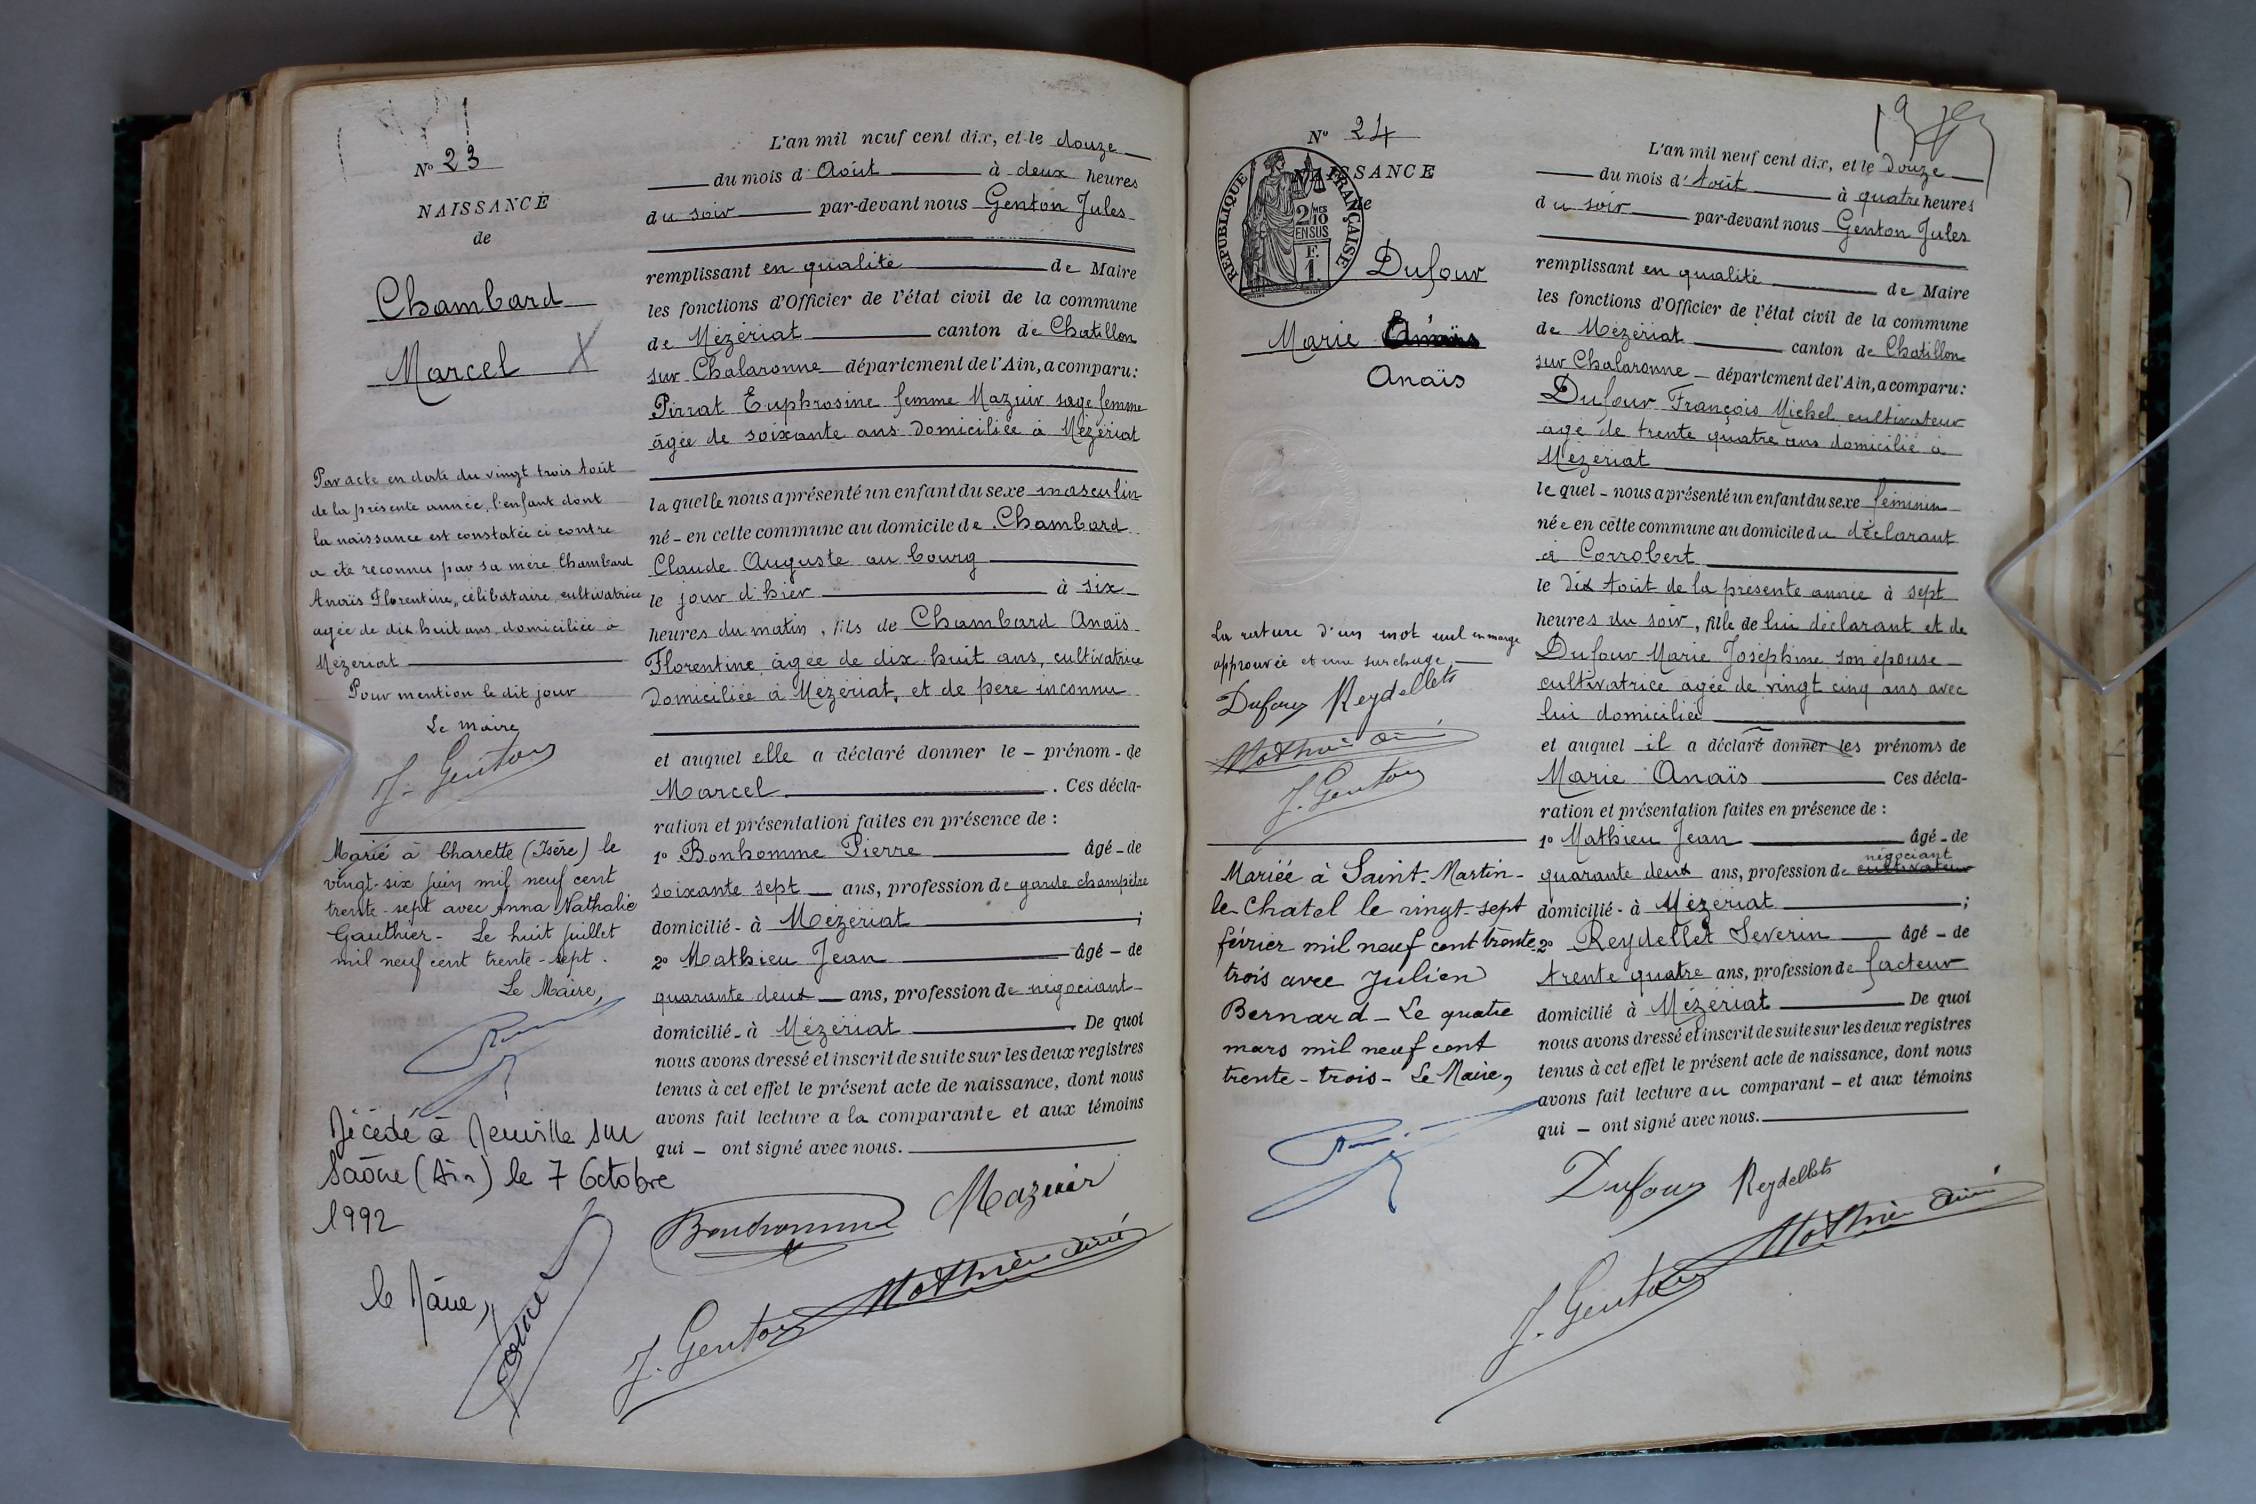 Nº 23
NAISSANCE
de
Chambard
Marcel X
Par acte en date du vingt trois Août
de la présente année, l'enfant dont
la naissance est constatée ci contre
a été reconnu par sa mère Chambard
Anaïs Florentine, célibataire, cultivatrice
agée de dix huit ans, domiciliée à
Mézériat
Pour mention le dit jour
Le maire
J. Genton
Marié à Charette (Isère) le
vingt-six juin mil neuf cent
trente-sept avec Anna Nathalie
Gauthier - Le huit juillet
mil neuf cent trente-sept.
Le Maire,
Décédé à Neuville sur
Saône (Ain) le 7 Octobre
1992
le Maire,
L'an mil neuf cent dix, et le douze
du mois d'Août à deux heures
du soir par-devant nous Genton Jules
remplissant en qualité de Maire
les fonctions d'Officier de l'état civil de la commune
de Mézériat canton de Chatillon
sur Chalaronne département de l'Ain, a comparu :
Pirrat Euphrosine femme Mazuir sage femme
âgée de soixante ans domiciliée à Mézériat
laquelle nous a présenté un enfant du sexe masculin
né - en cette commune au domicile de Chambard
Claude Auguste au bourg
le jour d'hier à six
heures du matin, fils de Chambard Anaïs
Florentine âgée de dix huit ans, cultivatrice
domiciliée à Mézériat, et de père inconnu
et auquel elle a déclaré donner le - prénom - de
Marcel. Ces décla-
ration et présentation faites en présence de :
1º Bonhomme Pierre âgé - de
soixante sept ans, profession de garde champêtre
domicilié - à Mézériat ;
2º Mathieu Jean âgé - de
quarante deux ans, profession de négociant
domicilié - à Mézériat. De quoi
nous avons dressé et inscrit de suite sur les deux registres
tenus à cet effet le présent acte de naissance, dont nous
avons fait lecture a la comparante et aux témoins
qui - ont signé avec nous.
Bonhomme Mazuir
J. Genton Mathieu Aîné
Nº 24
NAISSANCE
de
RÉPUBLIQUE FRANÇAISE
2/10
MES
EN SUS
F.
1.
Dufour
Marie Anaïs
Anaïs
La rature d'un mot nul en marge
approuvée et une surcharge
Dufour Reydellets
Mathieu Aîné
J. Genton
Mariée à Saint-Martin-
le-Chatel le vingt-sept
février mil neuf cent trente
trois avec Julien
Bernard - Le quatre
mars mil neuf cent
trente-trois - Le Maire,
L'an mil neuf cent dix, et le douze
du mois d'Août à quatre heures
du soir par-devant nous Genton Jules
remplissant en qualité de Maire
les fonctions d'Officier de l'état civil de la commune
de Mézériat canton de Chatillon
sur Chalaronne département de l'Ain, a comparu :
Dufour François Michel cultivateur
âgé de trente quatre ans domicilié à
Mézériat
lequel - nous a présenté un enfant du sexe féminin
née en cette commune au domicile du déclarant
à Corrobert
le dix Août de la présente année à sept
heures du soir, fille de lui déclarant et de
Dufour Marie Joséphine son épouse
cultivatrice agée de vingt cinq ans avec
lui domiciliée
et auquel il a déclaré donner les prénoms de
Marie Anaïs Ces décla-
ration et présentation faites en présence de :
1º Mathieu Jean âgé - de
négociant
quarante deux ans, profession de cultivateur
domicilié - à Mézériat ;
2º Reydellet Severin âgé - de
trente quatre ans, profession de facteur
domicilié à Mézériat De quoi
nous avons dressé et inscrit de suite sur les deux registres
tenus à cet effet le présent acte de naissance, dont nous
avons fait lecture au comparant - et aux témoins
qui - ont signé avec nous.
Dufour Reydellets
J. Genton Mathieu Aîné